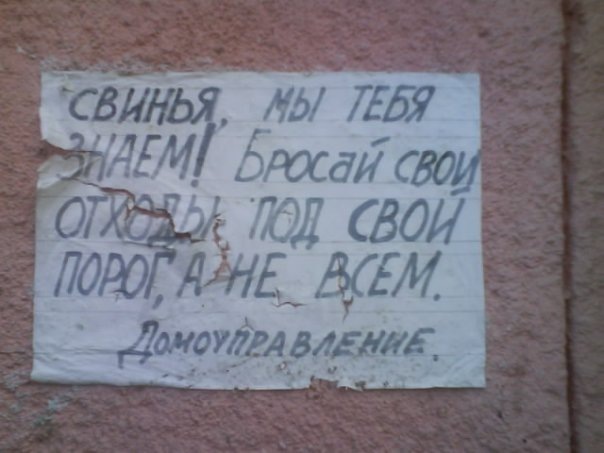 СВИНЬЯ, МЫ ТЕБЯ
ЗНАЕМ! Бросай свои
ОТХОДЫ ПОД СВОЙ
ПОРОГ, А НЕ ВСЕМ.
Домоуправление.